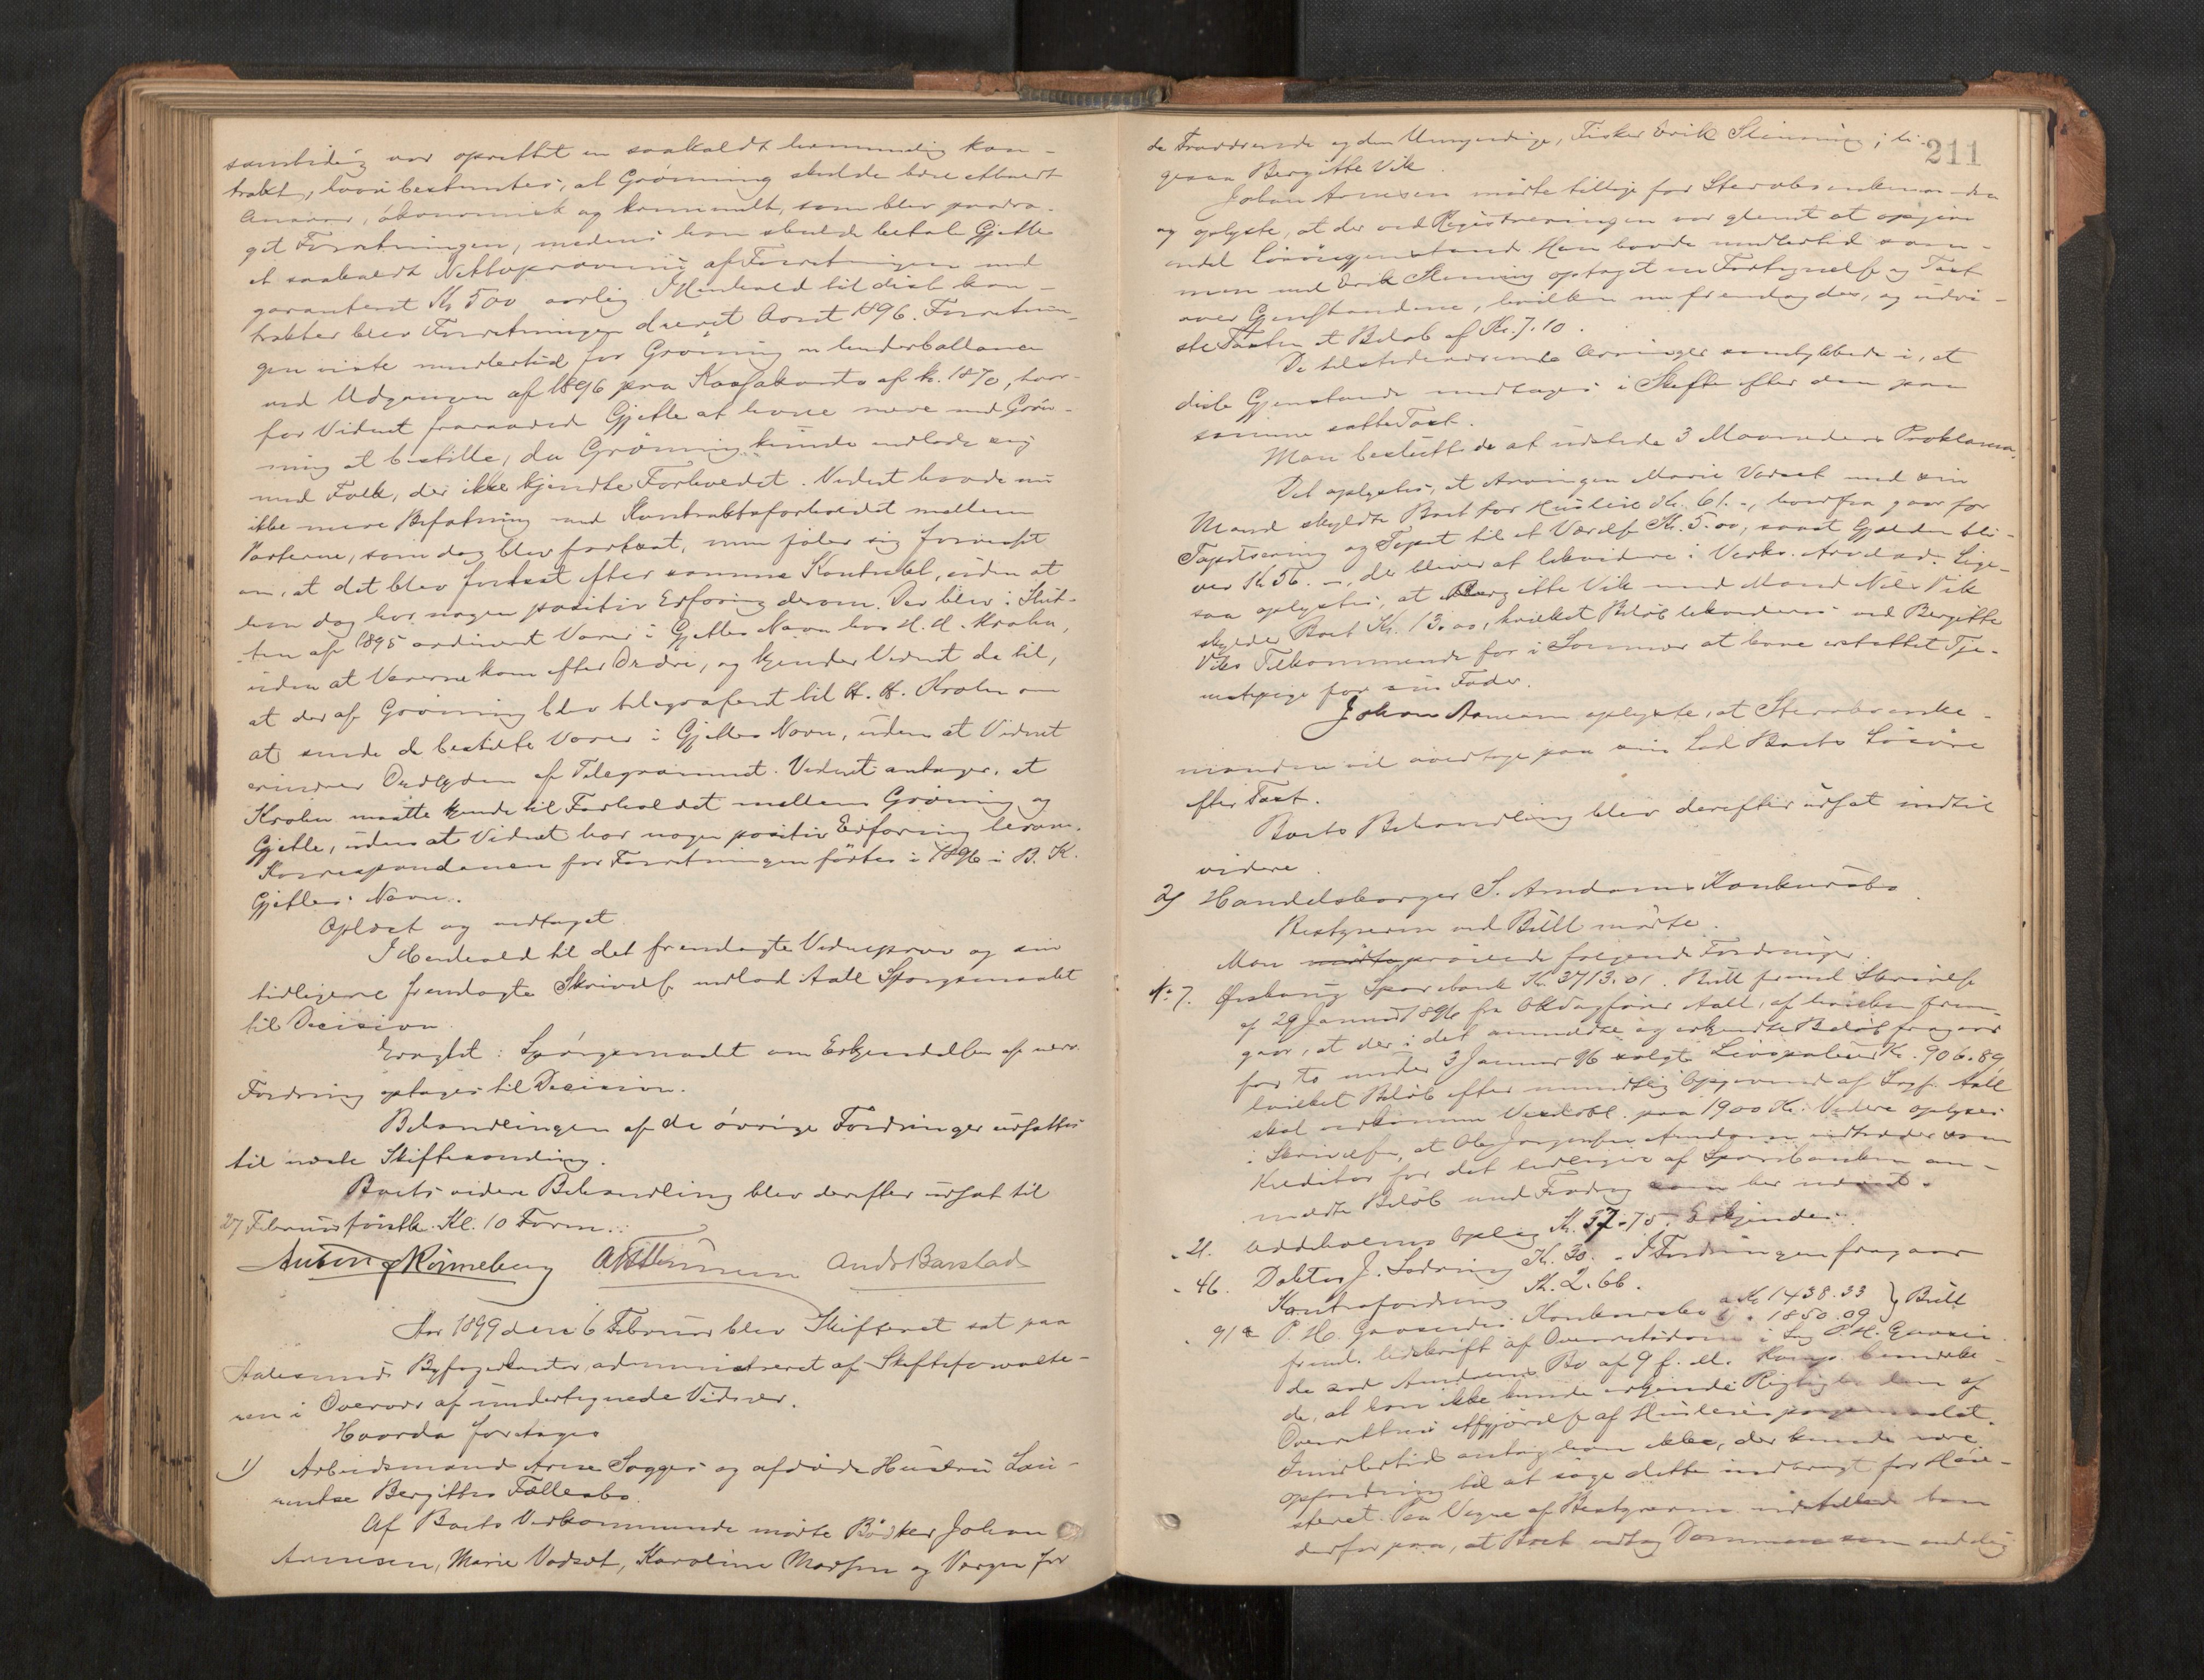 samtidig var oprettet en saakaldt hemmelig kon-
trakt, hvori bestemtes, at Grønning skulde have ethvert
Ansvar, økonomisk og kommunalt, som blev paadra-
get Forretningen, medens han skulde betale Gjetle
et saakaldt Nettoprovenu af Forretningen med
garanteret Kr. 500 aarlig. I Henhold til disse kon-
trakter blev Forretningen drevet Aaret 1896. Forretnin-
gen viste imidlertid for Grønning en Underballance
ved Udgangen af 1896 paa Kassakonto af kr. 1870, hvor-
for Vidnet fraraadede Gjetle at have mere med Grøn-
ning at bestille, da Grønning kunde indlade sig
med Folk, der ikke kjendte Forholdet. Vidnet havde nu
ikke mere Befatning med Kontraktsforholdet mellem
Parterne, som dog blev fortsat, men føler sig forvisset
om, at det blev fortsat efter samme Kontrakt, uden at
han dog har nogen positiv Erfaring derom. Der blev i Slut-
ten af 1895 ordineret Varer i Gjetles Navn hos H. H. Krohn,
uden at Varerne kom efter Ordre, og kjender Vidnet da til,
at der af Grønning blev telegraferet til H. H. Krohn om
at sende de bestilte Varer i Gjetles Navn, uden at Vidnet
erindrer Ordlyden af Telegrammet. Vidnet antager, at
Krohn maatte kjende til Forholdet mellem Grønning og
Gjetle, uden at Vidnet har nogen positiv Erfaring derom.
Korrespondancen for Forretningen førtes i 1896 i B. K.
Gjetles Navn.
Oplæst og vedtaget.
I Henhold til det fremlagte Vidneprov og sin
tidligere fremlagte Skrivelse indlod Aall Spørgsmaalet
til Decision.
Eragtet: Spørgsmaalet om Erkjendelsen af nævn.
Fordring optages til Decision.
Behandlingen af de øvrige Fordringer udsattes
til næste Skiftesamling.
Boets videre Behandling blev derefter udsat til
27 Februar førstk. Kl. 10 Form.
Anton Rønneberg Andr Barstad
Aar 1899 den 6 Februar blev Skifteret sat paa
Aalesunds Byfogedkontor, administreret af Skifteforvalte-
ren i Overvær af undertegnede Vidner.
Hvorda foretages
1) Arbeidsmand Arne Sagges og afdøde Hustru Lau-
rentse Bergittes Fællesbo.
Af Boets Vedkommende mødte Bødker Johan
Arnesen, Marie Vadset, Karoline Madsen og Værgen for
211
de Fraværende og den Umyndige, Fisker Erik Slinning; li-
gesaa Bergitte Vik.
Johan Arnesen mødte tillige for Stervbsenkeman-den
og oplyste, at der ved Registreringen var glemt at opgive
endel Løsøregjenstande. Han havde imidlertid sam-
men med Erik Slinning optaget en Fortegnelse og Taxt
over Gjenstandene, hvilken nu fremlagdes, og udvi-
ste Taxten et Beløb af Kr. 7.10.
De tilstedeværende Arvinger samtykkede i, at
disse Gjenstande medtages i Skiftet efter den paa
samme satte Taxt.
Man besluttede at udstede 3 Maaneders Proklama.
Det oplystes, at Arvingen Marie Vadset med sin
Mand skyldte Boet for Husleie Kr. 61.-, hvorfra gaar for
Tapetsering og Tapet til et Værdi Kr. 5.00, saaat Gjælden bli-
ver Kr. 56.-, der bliver at likvidere i Vedks. Arvelod. Lige-
saa oplystes, at Bergitte Vik med Mand Nils Vik
skylder Boet Kr. 13.00, hvilket Beløb likvideres ved Bergitte
Viks Tilkommende for i Sommer at have erstattet Tje-
nestepige for sin Fader.
Johan Arnesen oplyste, at Stervbsenke-
manden vil overtage paa sin Lod Boets Løsøre
efter Taxt.
Boets Behandling blev derefter udsat indtil
videre.
2) Handelsborger S. Amdams Konkursbo.
Bestyreren ved Bull mødte.
Man mødte prøvede følgende Fordringer:
No 7. Ørskoug Sparebank Kr. 3713.01. Bull freml. Skrivelse
af 29 Januar 1896 fra Sagfører Aall, af hvilken frem-
gaar, at der i det anmeldte og erkjendte Beløb fragaar
for to under 3 Januar 96 solgte Livspolicer Kr. 906.89
hvilket Beløb efter mundtlig Opgivende af Sagf. Aall
skal vedkomme Vexelobl. paa 1900 Kr. Videre oplyses
i Skrivelsen, at Ole Jørgensen Amdam indtræder som
Kreditor for det tidligere af Sparebanken an-
meldte Beløb med Fradrag som her nævnt.
- 21. Uddeholms Oplag Kr. 37.75. Erkjendes.
- 46. Doktor J. Lødring Kr. 30. - I Fordringen fragaar
Kontrafordring Kr. 2.66.
- 91 P. H. Gaaseides Konkursbo a Kr. 1438.33 } Bull
b - 1850.09
freml. Udskrift af Overretsdom i Sag P. H. Gaasei-
de mod Amdams Bo af 9 f. M. Komp. bemærke-
de, at han ikke kunde erkjende Rigtigheden af
Overrettens Afgjørelse af Husleiespørgsmaalet.
Imidlertid antog han ikke, der kunde være
Opfordring til at søge dette indbragt for Høie-
steret. Paa Vegne af Bestyreren indstillede han
derfor paa, at Boet vedtog Dommen som endelig